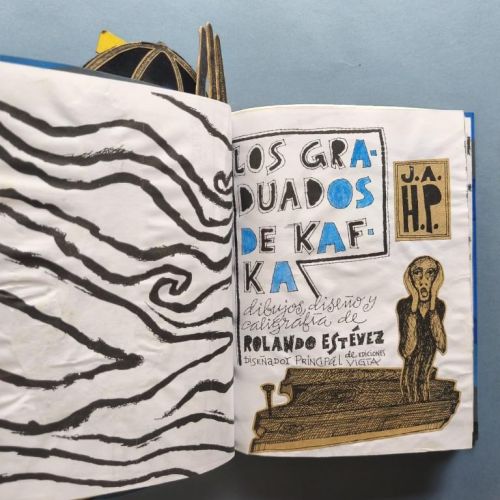 LOS GRA-
DUADOS
DE KAF-
KA
dibujos, diseño y
caligrafía de
ROLANDO ESTÉVEZ
DISEÑADOR PRINCIPAL de EDICIONES
VIGÍA
J.A.
H.P.